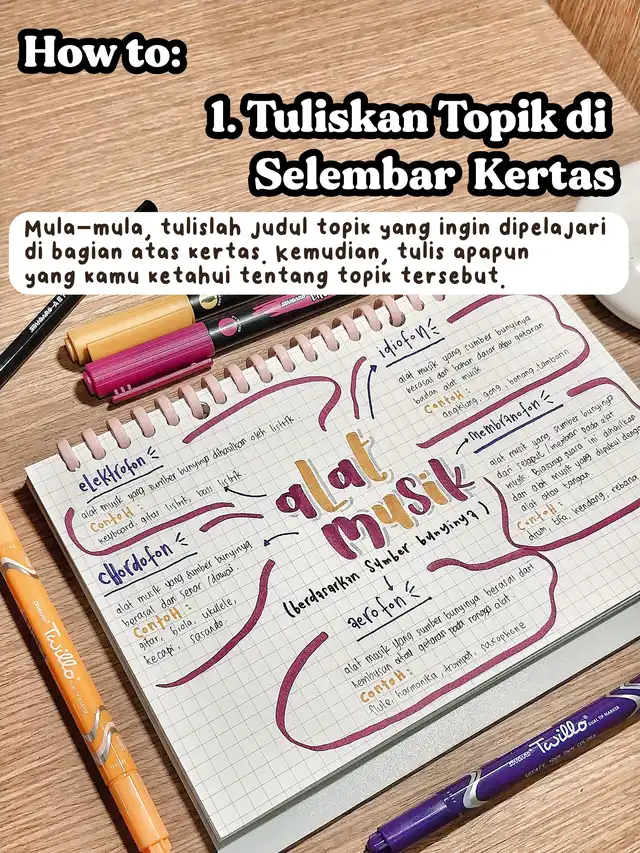 How to:
1. Tuliskan Topik di
Selembar Kertas
Mula-mula, tulislah judul topik yang ingin dipelajari
di bagian atas kertas. Kemudian, tulis apapun
yang kamu ketahui tentang topik tersebut.
idiofon
alat musik yang sumber bunyinya
berasal dari bahan dasar atau getaran
badan alat musik
Contoh:
angklung, gong, bonang, tamborin
membranofon
alat musik yang sumber bunyinya
musik. Biasanya suara ini dihasilkan
dari alat musik yang dipukul dengan
alat atau tangan.
Contoh:
drum, tifa, kendang, rebana
elektrofon
alat musik yang sumber bunyinya dihasilkan oleh listrik.
Contoh:
keyboard, gitar listrik, bass listrik
alat
musik
(berdasarkan sumber bunyinya)
chordofon
alat musik yang sumber bunyinya
berasal dari senar/dawai.
Contoh:
gitar, biola, ukulele,
kecapi, sasando.
aerofon
alat musik yang sumber bunyinya berasal dari
hembusan atau getaran pada rongga alat.
Contoh:
flute, harmonika, trompet, saxophone
Twillo
Twillo
DUAL TIP MARKER
CREATE YOUR OWN COLORS